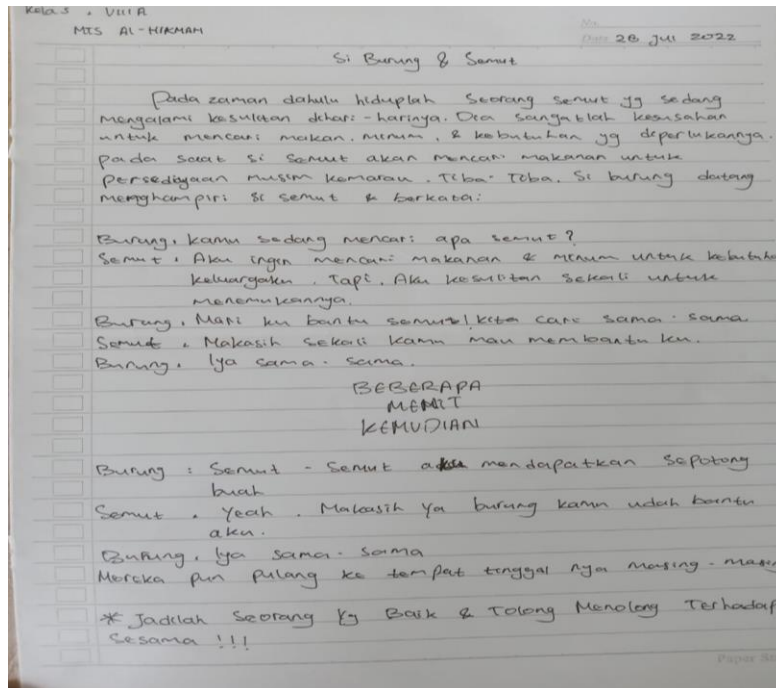 Kelas : VIII A
MTS AL-HIKMAH
No.
Date 28 Jul 2022
Si Burung & Semut
Pada zaman dahulu hiduplah Seorang semut yg sedang
mengalami kesulitan dihari-harinya. Dia sangatlah kesusahan
untuk mencari makan, minum, & kebutuhan yg diperlukannya.
pada saat si semut akan mencari makanan untuk
Persediyaan musim kemarau. Tiba-Tiba. Si burung datang
menghampiri si semut & berkata:
Burung. kamu sedang mencari apa semut?
Semut. Aku ingin mencari makanan & minum untuk kebutuha
keluargaku. Tapi. Aku kesulitan sekali untuk
menemukannya.
Burung. Mari ku bantu semut! kita cari sama-sama
Semut. Makasih sekali kamu mau membantu ku.
Burung. Iya sama-sama.
BEBERAPA
MENIT
KEMUDIAN
Burung : Semut - Semut aku mendapatkan sepotong
buah
Semut. Yeah. Makasih ya burung kamu udah bantu
aku.
Burung. Iya sama-sama
Mereka pun pulang ke tempat tinggal nya masing-masin
* Jadilah Seorang Yg Baik & Tolong Menolong Terhadap
Sesama !!!